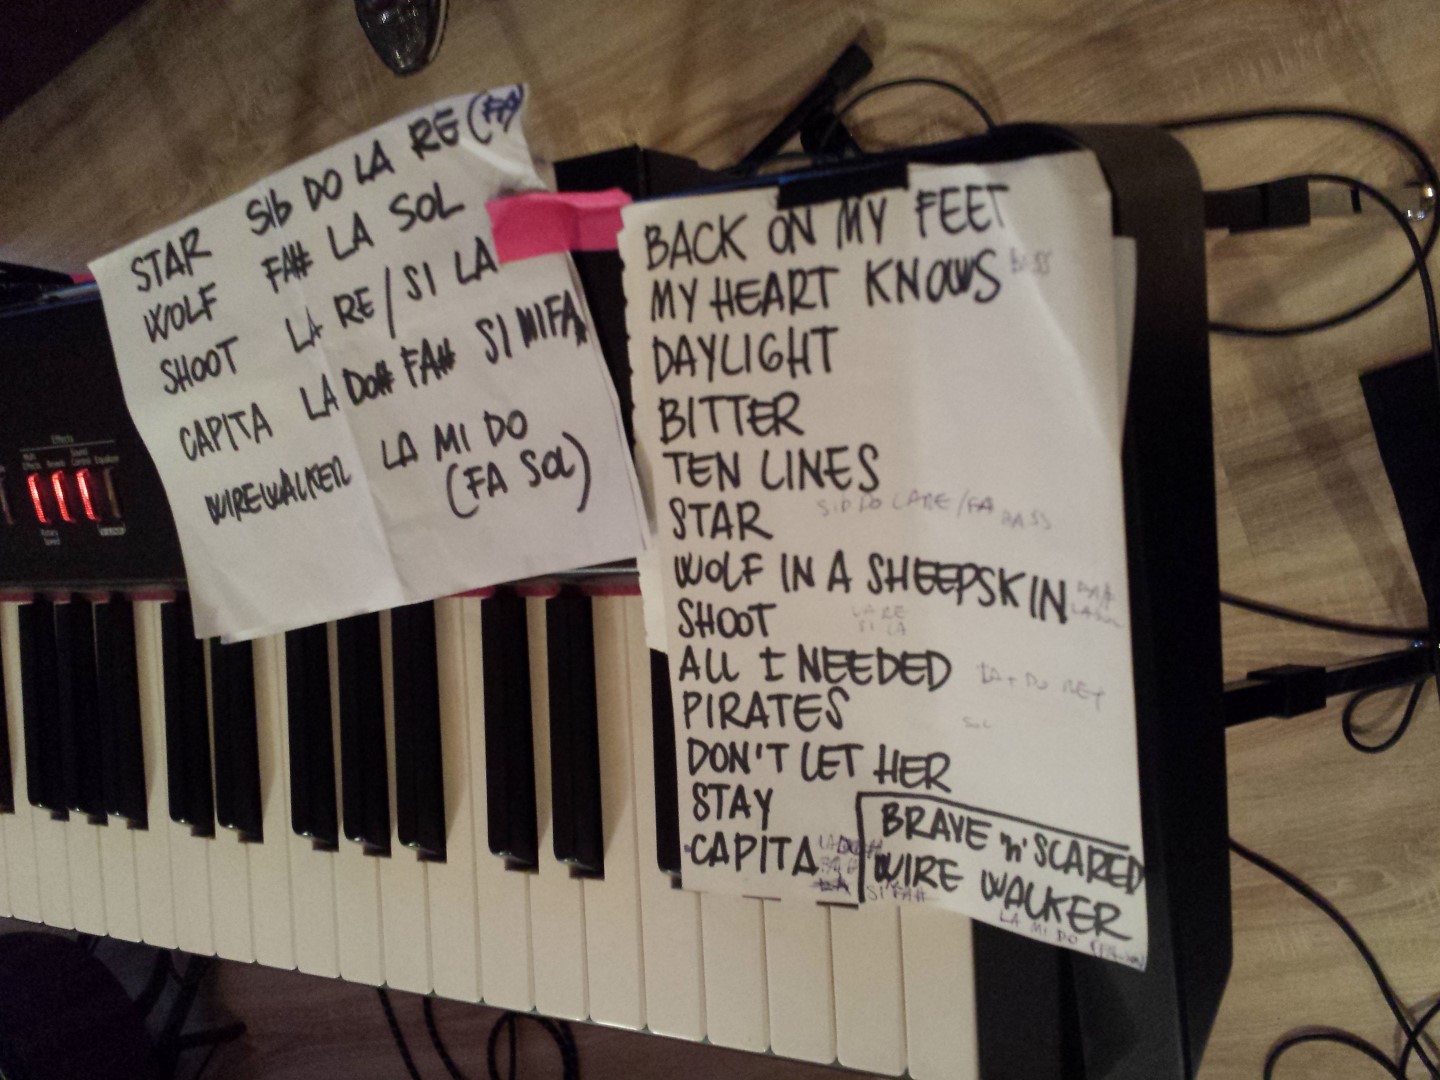 STAR SIb DO LA RE (FA)
WOLF FA# LA SOL
SHOOT LA RE / SI LA
CAPITA LA DO# FA# SI MI FA#
WIREWALKER LA MI DO
(FA SOL)
BACK ON MY FEET
MY HEART KNOWS BASS
DAYLIGHT
BITTER
TEN LINES
STAR SIb DO LA RE / FA BASS
WOLF IN A SHEEPSKIN FA#
LA SOL
SHOOT LA RE
SI LA
ALL I NEEDED
PIRATES SOL
DON'T LET HER
STAY
CAPITA
SI FA#
BRAVE 'n' SCARED
WIRE WALKER
LA MI DO (FA SOL)
Effects